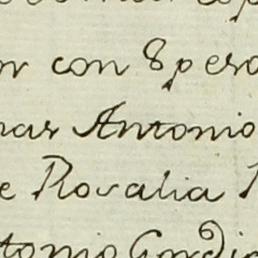 or con 8 pers
nas Antonio
e Rosalia
tonio Gordi